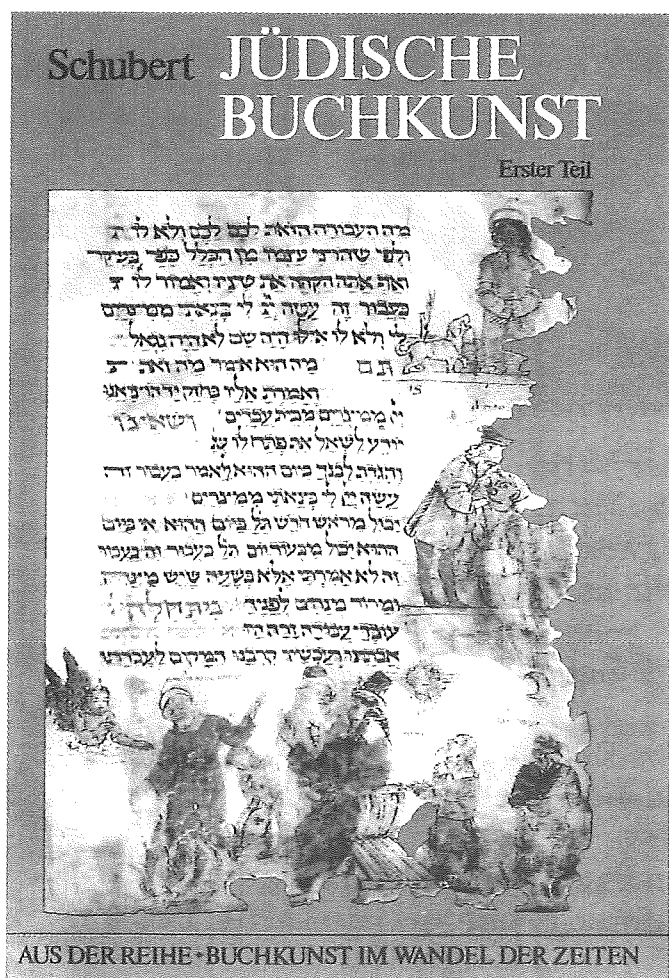 Schubert JÜDISCHE
BUCHKUNST
Erster Teil
מה העבודה הזאת לכם לכם ולא לו
ולפי שהוציא עצמו מן הכלל כפר בעיקר
ואף אתה הקהה את שיניו ואמור לו
בעבור זה עשה יי לי בצאתי ממצרים
לי ולא לו אילו היה שם לא היה נגאל
תם מה הוא אומר מה זאת
ואמרת אליו בחוזק יד הוציאנו
יי ממצרים מבית עבדים ושאינו
יודע לשאל את פתח לו
והגדת לבנך ביום ההוא לאמר בעבור זה
עשה יי לי בצאתי ממצרים
יכול מראש חדש ביום ההוא אי ביום
ההוא יכול מבעוד יום בעבור זה בעבור
זה לא אמרתי אלא בשעה שיש מצה
ומרור לפניך מתחלה
עובדי עבודה זרה היו
אבותינו ועכשיו קרבנו המקום לעבודתו
AUS DER REIHE • BUCHKUNST IM WANDEL DER ZEITEN